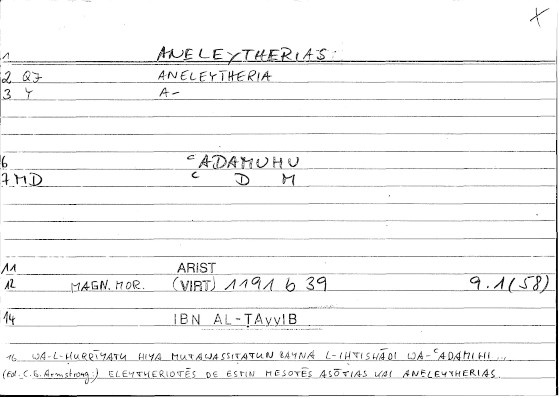 X
1 ANELEYTHERIAS:
2 Q7 ANELEYTHERIA
3 Y A-
6 ʿADAMUHU
7 MD ʿ D M
11 ARIST
12 MAGN. MOR. (VIRT) 1191 b 39 9.1(58)
14 IBN AL-ṬAyyIB
16 WA-L-ḤURRĪYATU HIYA MUTAWASSITATUN BAYNA L-IHTISHĀDI WA-ʿADAMIHI ...
(Ed. C.G. Armstrong:) ELEYTHERIOTĒS DE ESTIN MESOTĒS ASŌTIAS KAI ANELEYTHERIAS.